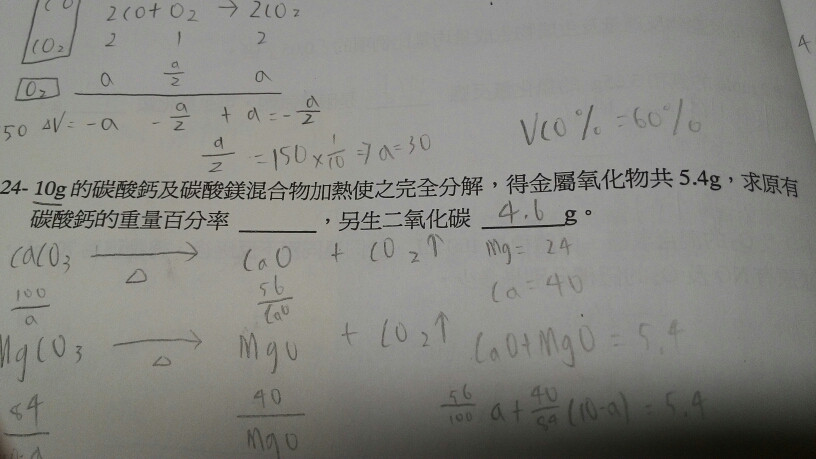 CO 2CO + O₂ → 2CO₂
CO₂ 2 1 2
O₂ a a/2 a
50 ΔV = -a - a/2 + a = - a/2
VCO% = 60%
a/2 = 150 × 1/10 ⇒ a = 30
24- 10g 的碳酸鈣及碳酸鎂混合物加熱使之完全分解,得金屬氧化物共 5.4g,求原有
碳酸鈣的重量百分率 ______,另生二氧化碳 4.6 g。
CaCO₃ →Δ CaO + CO₂↑ Mg = 24
100/a 56/CaO Ca = 40
MgCO₃ →Δ MgO + CO₂↑ CaO + MgO = 5.4
84 40/MgO 56/100 a + 40/84 (10-a) = 5.4
4